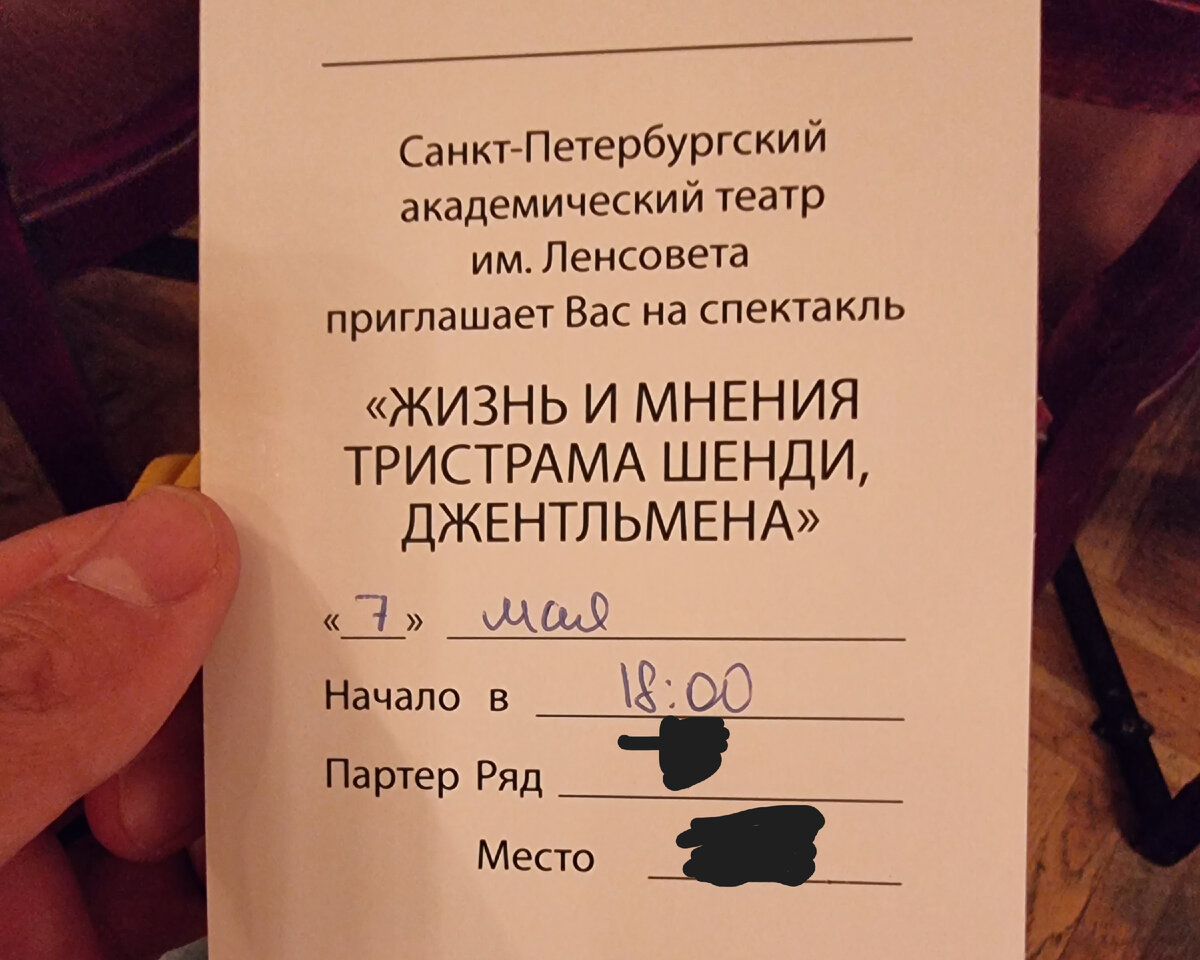 Санкт-Петербургский
академический театр
им. Ленсовета
приглашает Вас на спектакль
«ЖИЗНЬ И МНЕНИЯ
ТРИСТРАМА ШЕНДИ,
ДЖЕНТЛЬМЕНА»
«7» мая
Начало в 18:00
Партер Ряд
Место